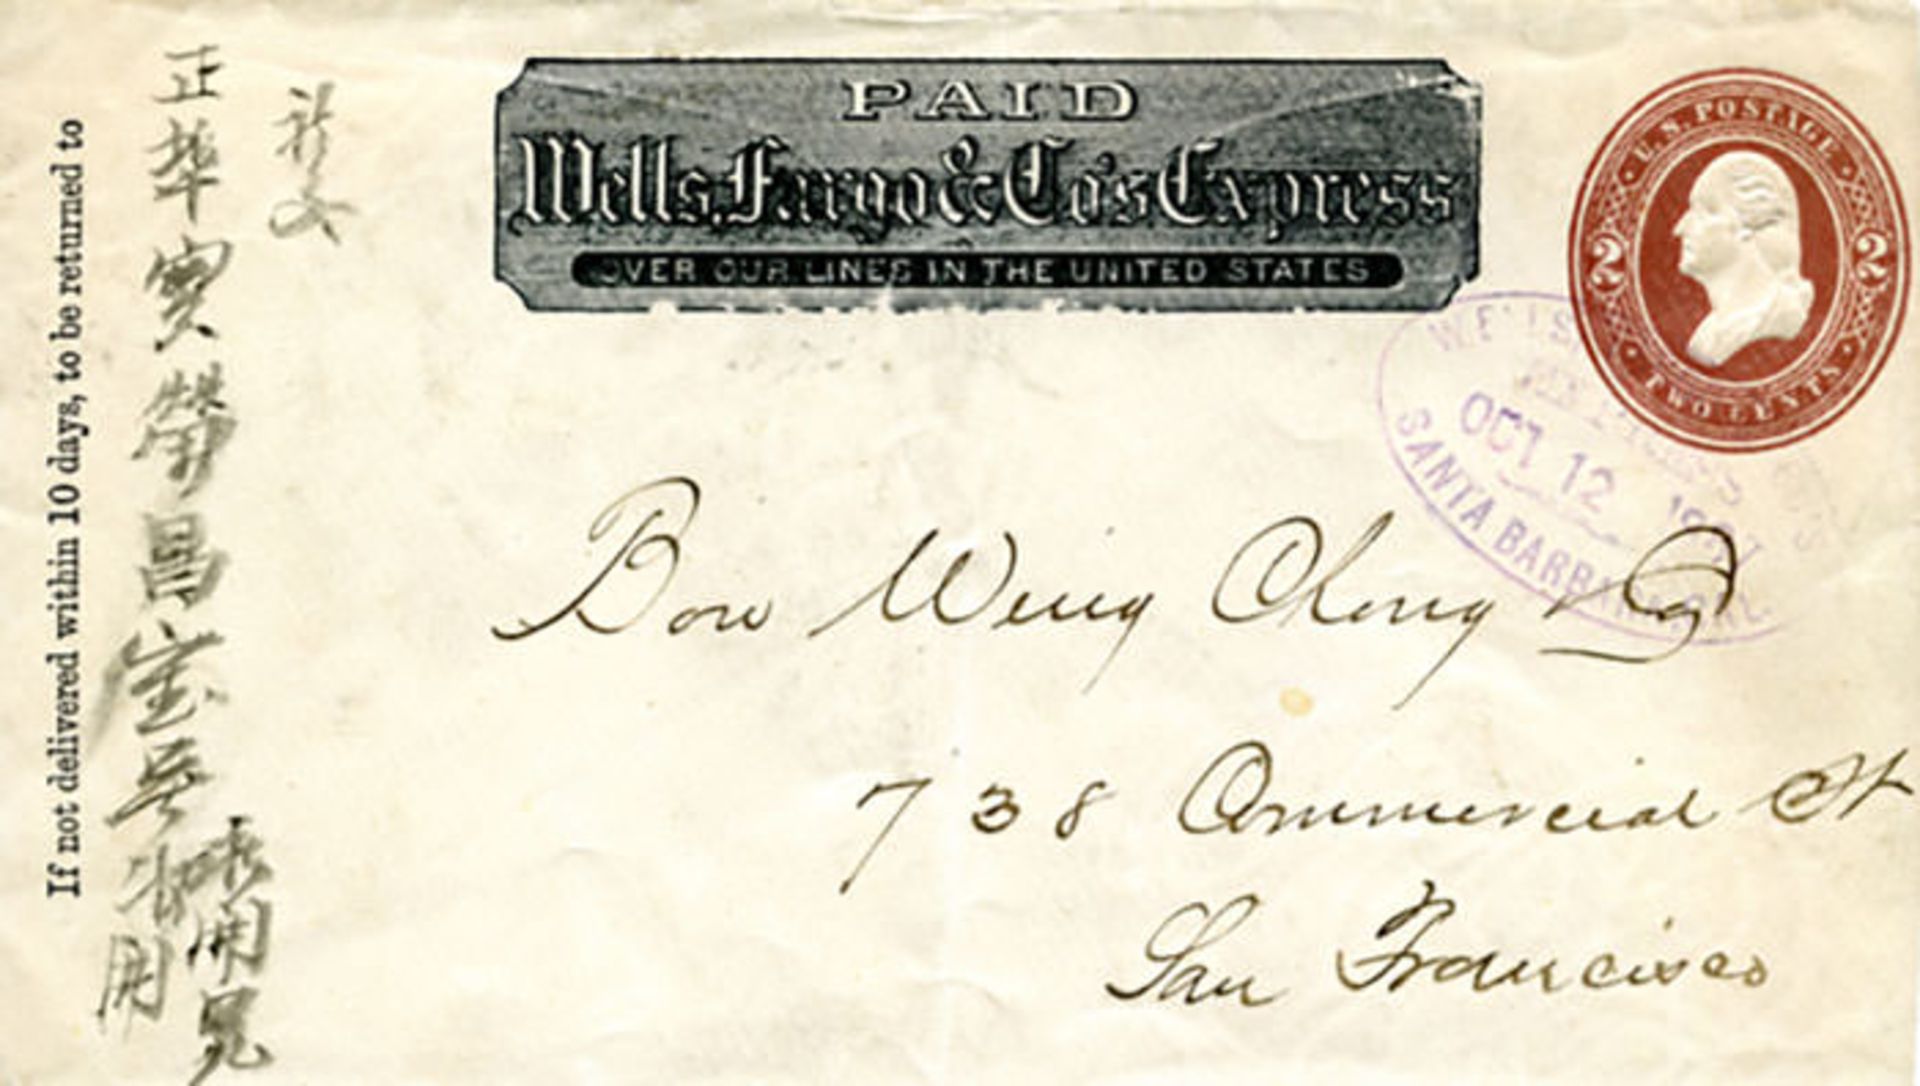 If not delivered within 10 days, to be returned to
祈交
正埠寳榮昌宝号
開兄
PAID
Wells, Fargo & Co's Express
OVER OUR LINES IN THE UNITED STATES
U.S. POSTAGE
2 2
TWO CENTS
WELLS
EXPRESS
OCT 12
SANTA BARBARA, CAL.
Bow Wing Chong Co
738 Commercial St
San Francisco